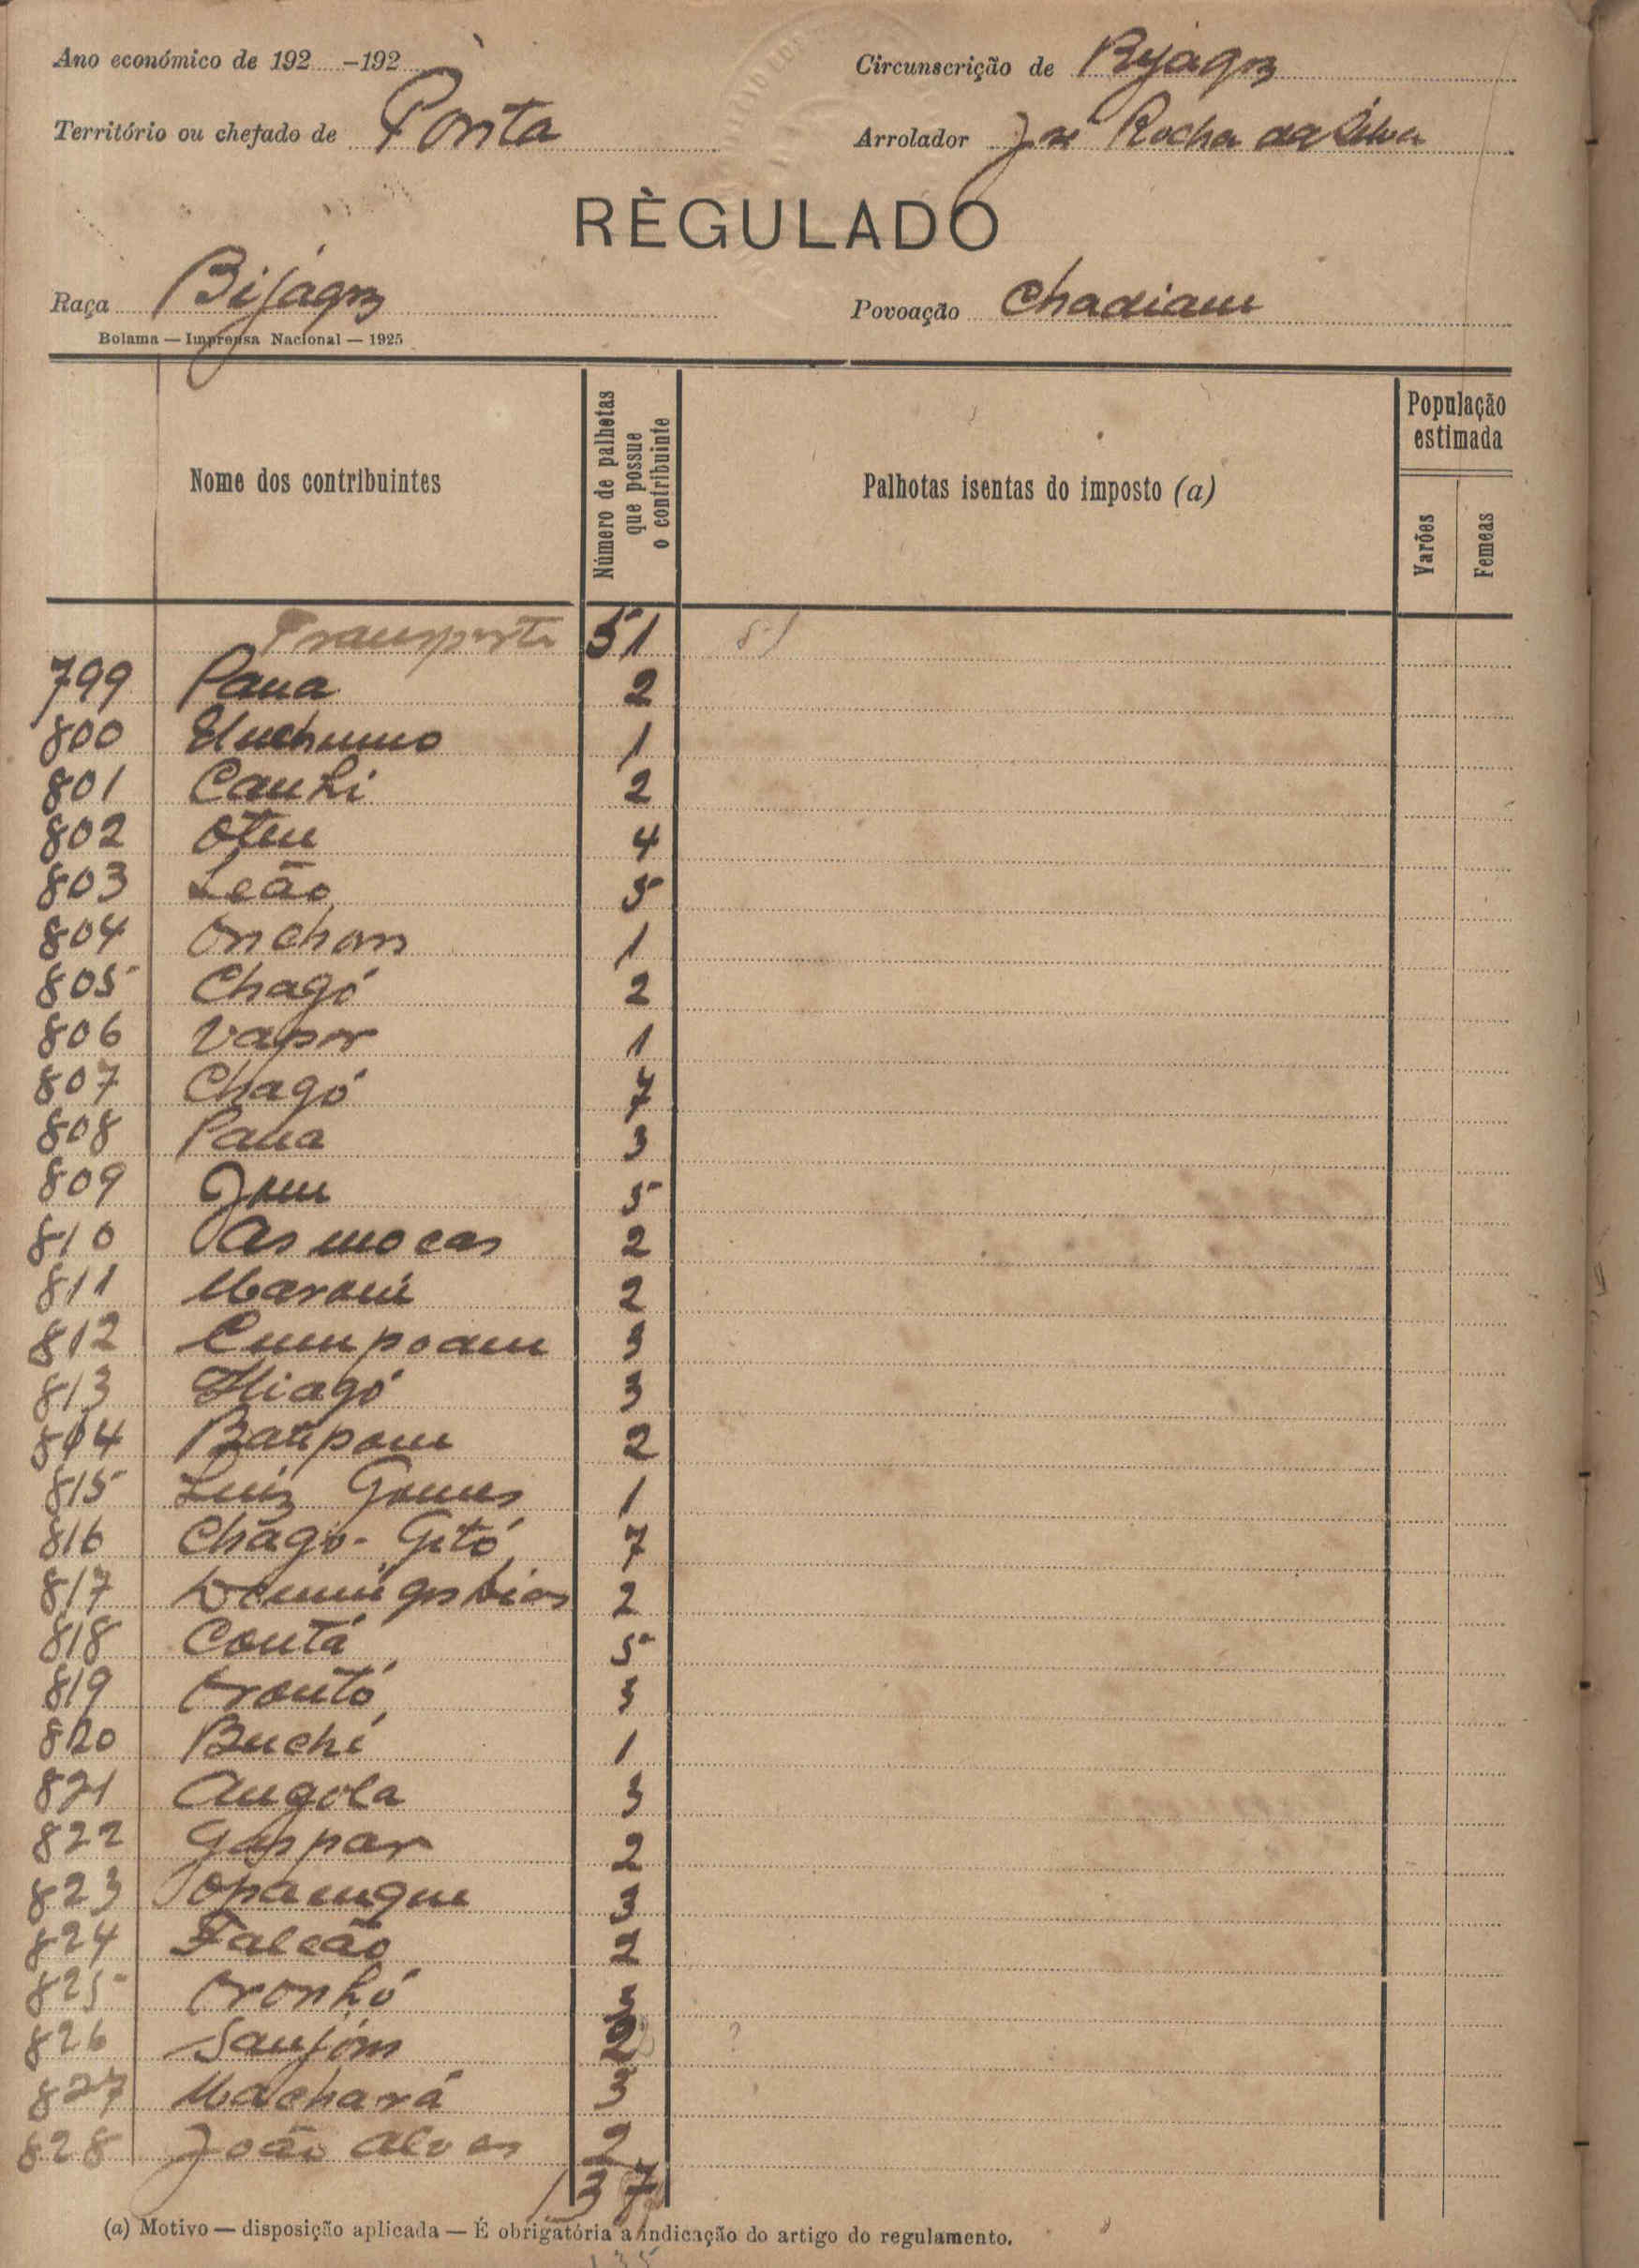 Ano económico de 192 -192
Circunscrição de Bijagoz
Território ou chefado de Ponta
Arrolador José Rocha da Silva
RÈGULADO
Raça Bijágoz
Povoação Chadiam
Bolama — Imprensa Nacional — 1925
Nome dos contribuintes
Número de palhetas que possue o contribuinte
Palhotas isentas do imposto (a)
População estimada
Varões
Femeas
Transporte 51 51
799 Pana 2
800 1
801 Canhi 2
802 Oteu 4
803 Leão 5
804 Onchon 1
805 Chagó 2
806 Vapor 1
807 Chagó 7
808 Pana 3
809 5
810 2
811 2
812 Cumpoam 3
813 Thiagó 3
814 2
815 Luiz Gomes 1
816 Chagó-Gitó 7
817 Domingos Dias 2
818 Contá 5
819 Orontó 3
820 Buchi 1
821 Angola 3
822 Gaspar 2
823 3
824 Falcão 2
825 Oronhó 3
826 Sanjóm 2 ?
827 Machará 3
828 João Alves 2
137
(a) Motivo — disposição aplicada — É obrigatória a indicação do artigo do regulamento.
135